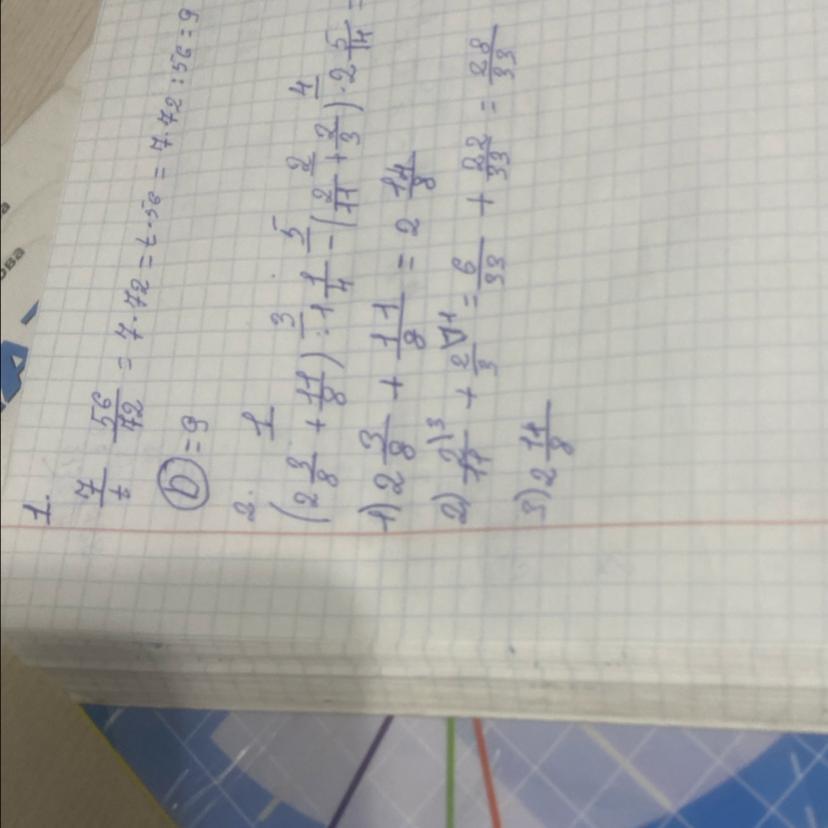 1.
7/t 56/72 = 7·72 = t·56 = 7·72:56=9
D) =9
2.
1 3 5 2 4
(2 3/8 + 11/8) : 1 1/4 - (2/11 + 2/3) · 2 5/14 =
1) 2 3/8 + 11/8 = 2 14/8
2) 2/11 \3 + 2/3 \11 = 6/33 + 22/33 = 28/33
3) 2 14/8
ова